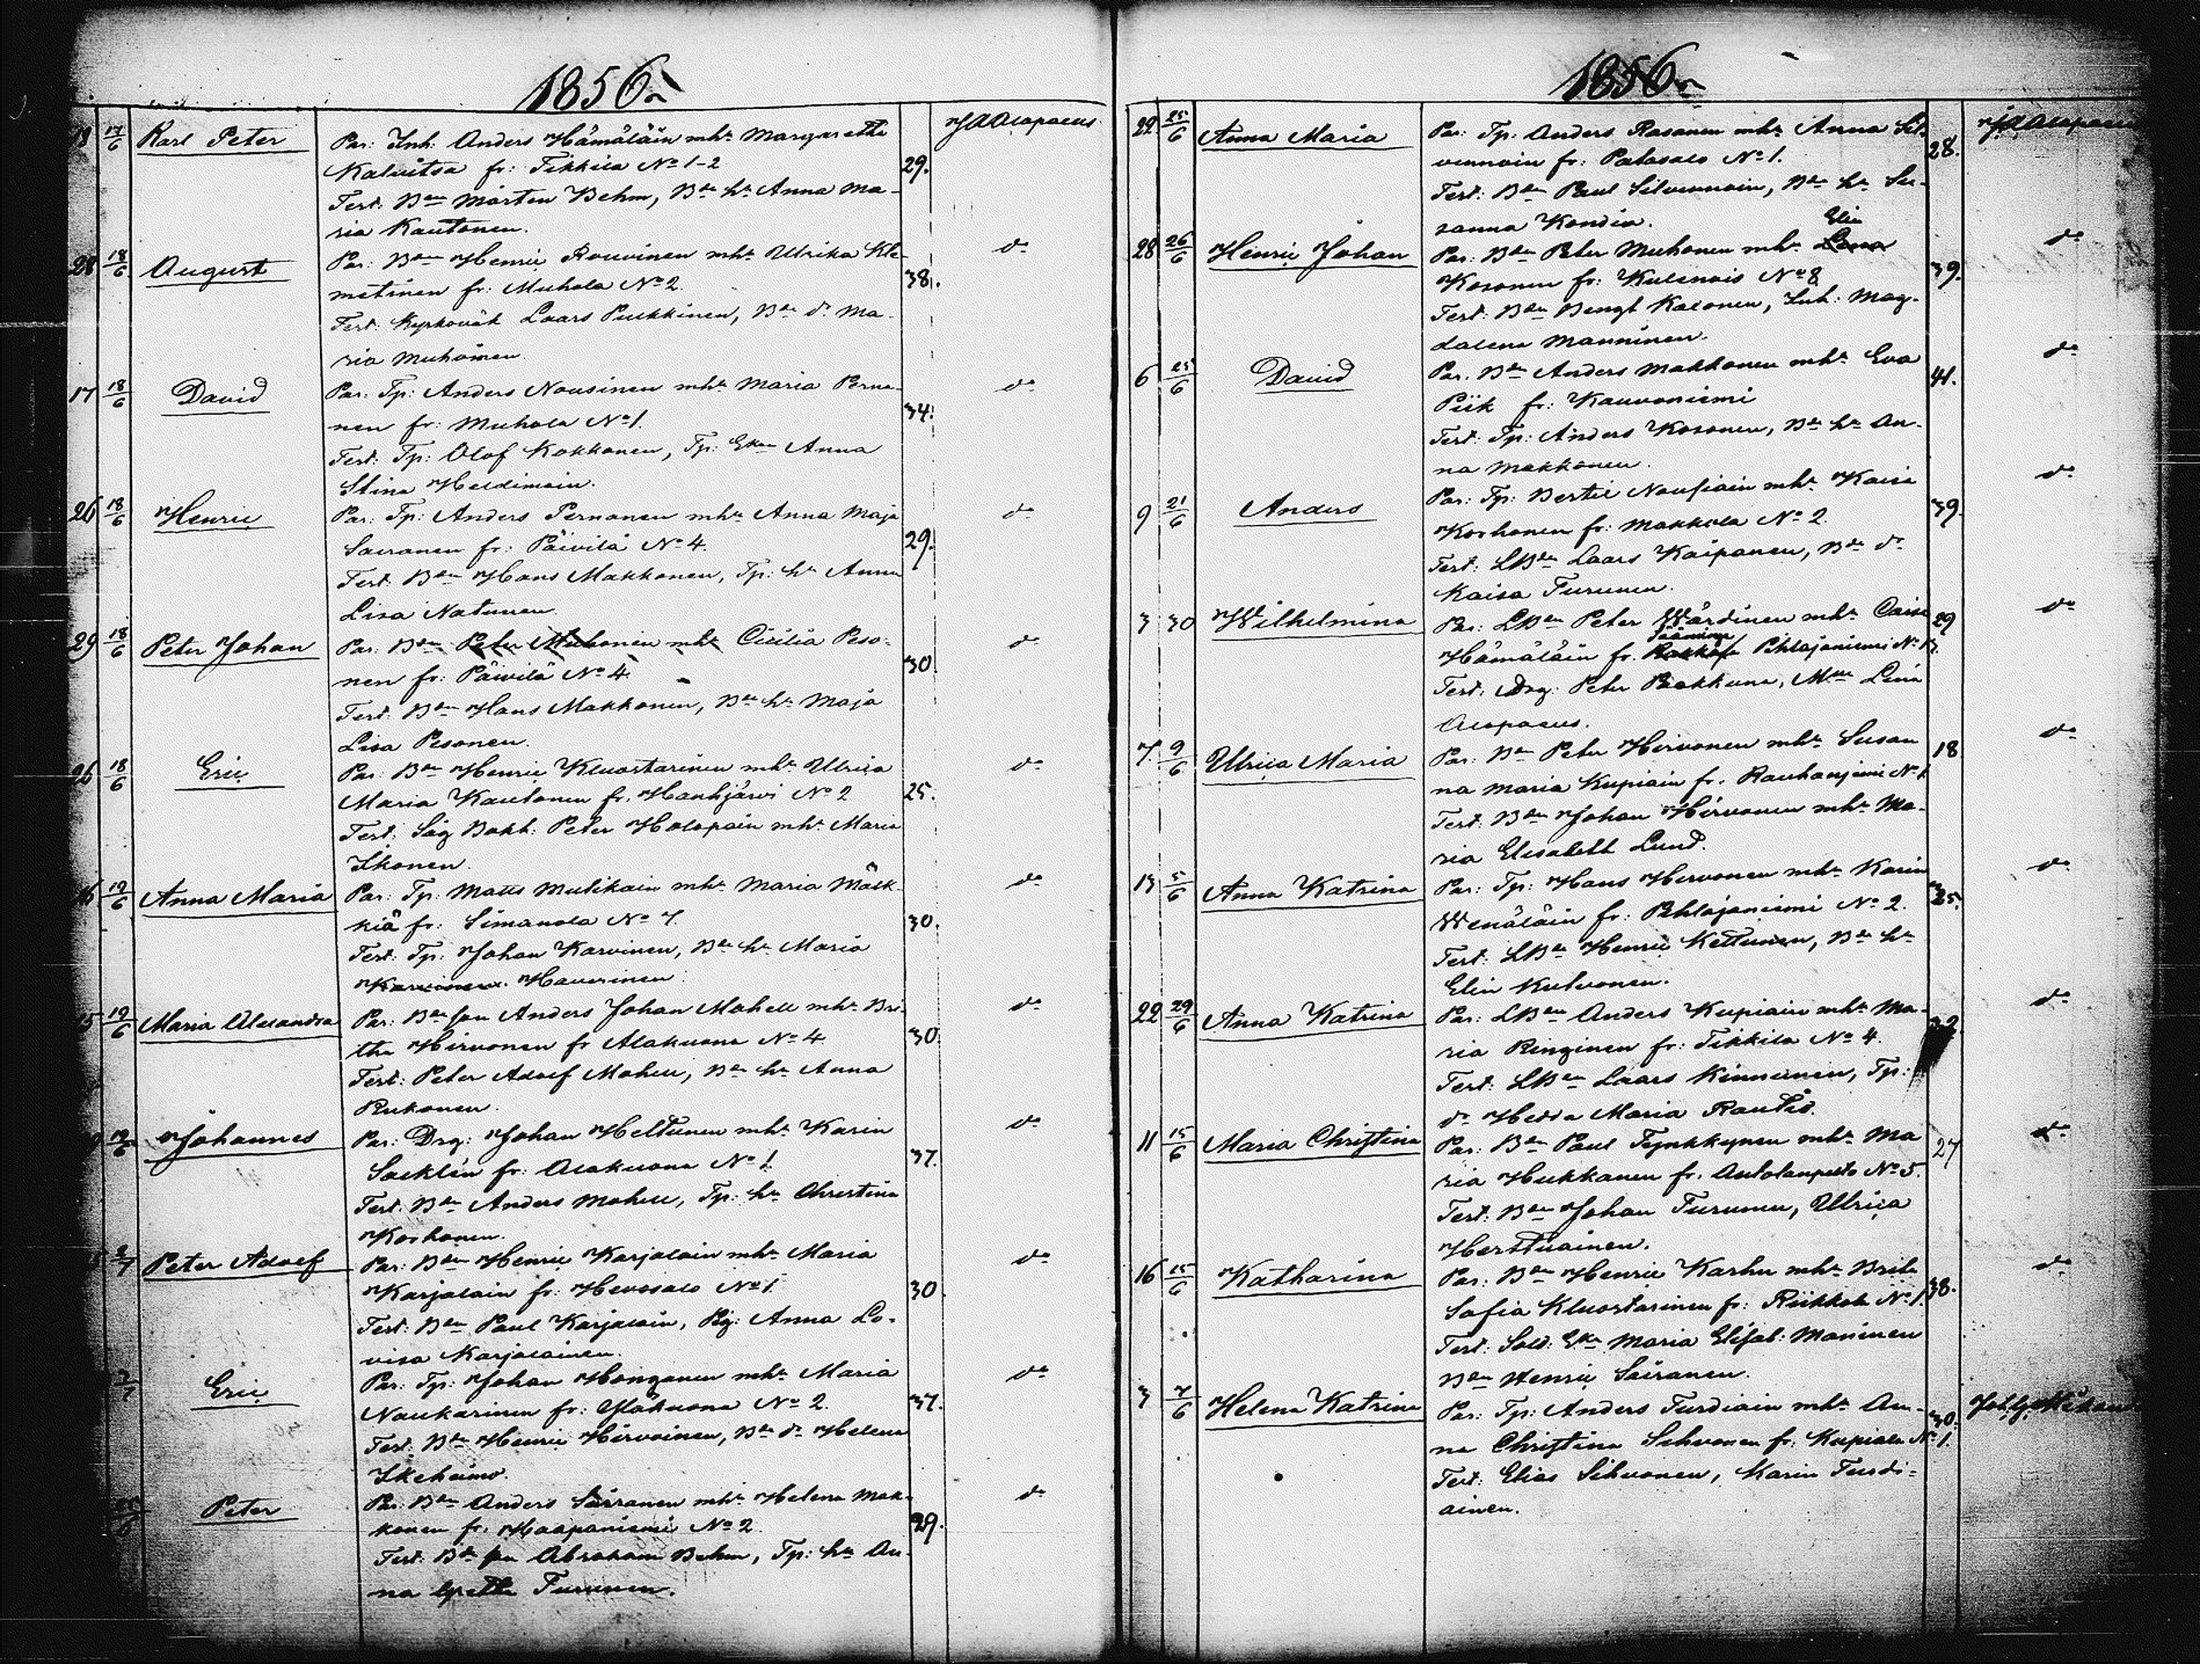 1856.
18 17/6 Karl Peter Par: Inh: Anders Hämäläin mhr Margaretha J A Alopaeus
Kalvitsa fr: Tikkila No 1-2 29.
Test: Bdn Mårten Behm, Bde hr Anna Ma-
ria Kautonen.
28 18/6 August Par: Bdn Henric Rouvinen mhr Ulrika Kle- do
metinen fr: Muhola No 2. 38.
Test: Kyrkovärk Laars Pulkkinen, Bde dr Ma-
ria Muhoinen
17 18/6 David Par: Tp: Anders Nousinen mhr Maria Perna- do
nen fr: Muhola No 1. 34.
Test: Tp: Olof Kokkonen, Tp: Ekan Anna
Stina Heldimoin.
26 18/6 Henric Par: Tp: Anders Pernanen mhr Anna Maja do
Sairanen fr: Päivilä No 4. 29.
Test: Bdn Hans Makkonen, Tp: hr Anna
Lisa Natunen
29 18/6 Peter Johan Par: Bdn Peter Muhonen mhr Cicilia Peso- do
nen fr: Päivilä No 4. 30.
Test: Bdn Hans Makkonen, Bde hr Maja
Lisa Pesonen.
26 18/6 Eric Par: Bdn Henric Kluostarinen mhr Ulrica do
Maria Kautonen fr: Hanhijärvi No 2 25.
Test: Såg Bokh: Peter Holopain mhr Maria
Ikonen.
16 19/6 Anna Maria Par: Tp: Matts Mulikain mhr Maria Mölk- do
kiä fr: Simanola No 7. 30.
Test: Tp: Johan Karvinen, Bde hr Maria
Karvinen. Haverinen
15 19/6 Maria Alexandra Par: Bde son Anders Johan Mahell mhr Bri- do
tha Hirvonen fr Alakuona No 4 30.
Test: Peter Adolf Mahell, Bde hr Anna
Rukonen.
19/6 Johannes Par: Drg: Johan Heltunen mhr Karin do
Sacklén fr: Alakuona No 1. 37.
Test: Bdn Anders Mahell, Tp: hr Christina
Korhonen.
2/7 Peter Adolf Par: Bdn Henric Karjalain mhr Maria do
Karjalain fr: Hevossalo No 1. 30
Test: Bdn Paul Karjalain, Pig: Anna Lo-
visa Karjalainen.
2/7 Eric Par: Tp: Johan Honganen mhr Maria do
Naukarinen fr: Yläkuona No 2. 37.
Test: Bdn Henric Hirvoinen, Bde dr Helena
Ikeheimo.
Peter Par: Bdn Anders Särranen mhr Helena Mak- do
konen fr: Haapaniemi No 2. 29.
Test: Bde son Abraham Behm, Tp: hr An-
na Turunen.
1856.
22 25/6 Anna Maria Par: Tp: Anders Rasanen mhr Anna Sil- J A Alopaeus
vennoin fr: Patasalo No 1. 28.
Test: Bdn Paul Silvennoin, Bde hr Su-
sanna Kondia.
Elin
28 26/6 Henric Johan Par: Bdn Peter Muhonen mhr Lena do
Kosonen fr: Kulennois No 8 39.
Test: Bdn Bengt Kosonen, Inh: Mag-
dalena Manninen.
6 25/6 David Par. Bdn Anders Makkonen mhr Eva do
Piik fr: Kauvoniemi 41.
Test: Tp: Anders Kosonen, Bde hr An-
na Makkonen.
9 21/6 Anders Par: Tp: Bertil Nousiain mhr Kaisa do
Korhonen fr: Makkola No 2. 39.
Test: LBdn Laars Kaipanen, Bde dr
Kaisa Turunen.
3 30 Wilhelmina Par: LBdn Peter Wärdinen mhr Caisa 29 do
Sääminge
Hämäläin fr. Pihlajaniemi No 13.
Test: Drg: Peter Pakkuna, Mme Lena
Alopaeus.
7. 9/6 Ulrica Maria Par: Bdn Peter Hirvonen mhr Susan 18 do
na Maria Kupiain fr. Rauhaniemi No 1
Test: Bdn Johan Hirvonen mhr Ma-
ria Elisabeth Lund.
13 5/6 Anna Katrina Par: Tp: Hans Hirvonen mhr Karin do
Wenäläin fr: Pihlajaniemi No 2. 25.
Test: LBdn Henric Kettunen, Bde hr
Elin Kulvonen.
22 29/6 Anna Katrina Par: LBdn Anders Kupiain mhr Ma- do
ria Ringinen fr: Tikkila No 4. 32.
Test: LBdn Laars Kinnunen, Tp:
dr Hedda Maria Rautio.
11 15/6 Maria Christina Par: Bdn Paul Tynkkynen mhr Ma do
ria Hukkanen fr. Autolanpelto No 5. 27
Test: Bdn Johan Turunen, Ulrica
Herttuainen.
16 15/6 Katharina Par: Bdn Henric Karhu mhr Brita do
Sofia Kluostarinen fr: Riikkola No 1. 38.
Test: Sold: Eka Maria Elisab: Maninen
Bdn Henric Säiranen.
3 7/6 Helena Katrina Par: Tp: Anders Turdiain mhr An-
na Christina Sihvonen fr: Kupiala No 1. 30.
Test: Elias Sihvonen, Karin Turdi-
ainen.